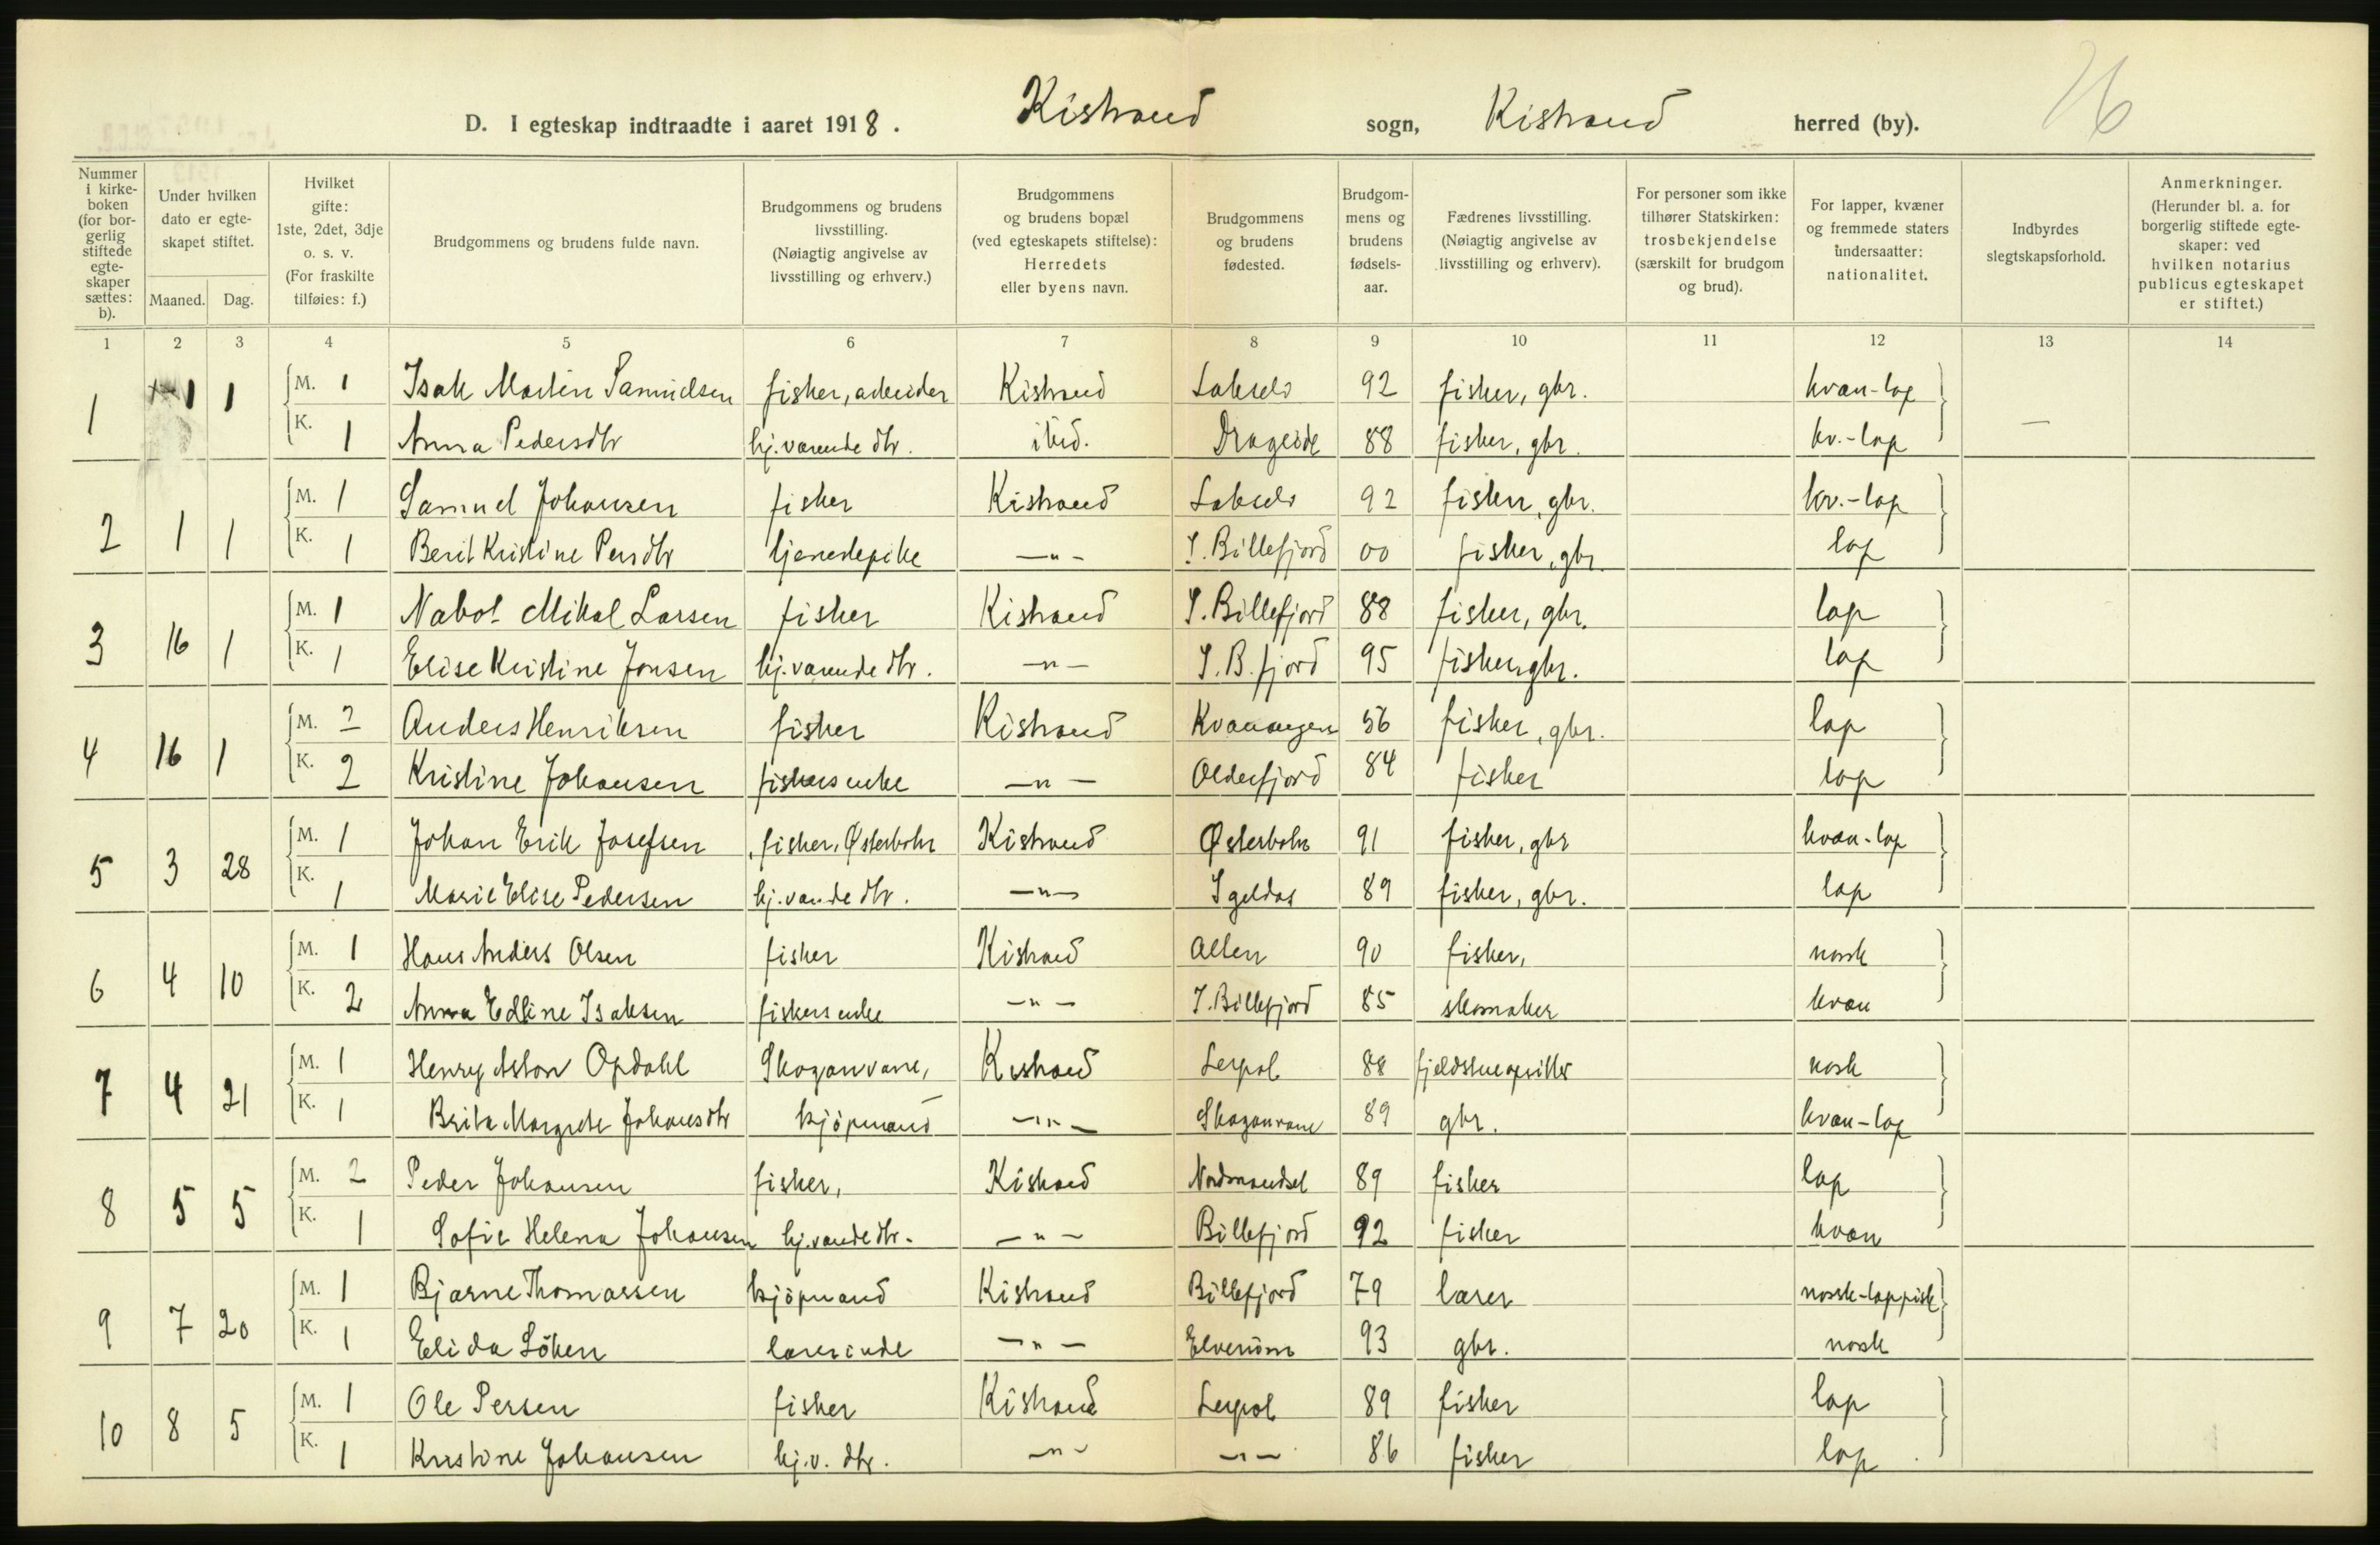 26
D. I egteskap indtraadte i aaret 1918. Kistrand sogn, Kistrand herred (by).
Nummer i kirkeboken (for borgerlig stiftede egteskaper sættes: b).
Under hvilken dato er egteskapet stiftet.
Maaned. Dag.
Hvilket gifte: 1ste, 2det, 3dje o. s. v. (For fraskilte tilføies: f.)
Brudgommens og brudens fulde navn.
Brudgommens og brudens livsstilling. (Nøiagtig angivelse av livsstilling og erhverv.)
Brudgommens og brudens bopæl (ved egteskapets stiftelse): Herredets eller byens navn.
Brudgommens og brudens fødested.
Brudgommens og brudens fødselsaar.
Fædrenes livsstilling. (Nøiagtig angivelse av livsstilling og erhverv).
For personer som ikke tilhører Statskirken: trosbekjendelse (særskilt for brudgom og brud).
For lapper, kvæner og fremmede staters undersaatter: nationalitet.
Indbyrdes slegtskapsforhold.
Anmerkninger. (Herunder bl. a. for borgerlig stiftede egteskaper: ved hvilken notarius publicus egteskapet er stiftet.)
1 2 3 4 5 6 7 8 9 10 11 12 13 14
1 1 1 M. 1 Isak Martin Samuelsen fisker, arbeider Kistrand Lakselv 92 fisker, gbr. kvæn-lap
K. 1 Anna Pedersdtr hj. værende dtr. ibid. Drageide 88 fisker, gbr. kv.-lap —
2 1 1 M. 1 Samuel Johansen fisker Kistrand Lakselv 92 fisker, gbr. kv.-lap
K. 1 Berit Kristine Persdtr tjenestepike —"— I. Billefjord 00 fisker, gbr. lap
3 16 1 M. 1 Nabot Mikal Larsen fisker Kistrand I. Billefjord 88 fisker, gbr. lap
K. 1 Elise Kristine Jonsen hj. værende dtr. —"— I. B. fjord 95 fisker, gbr. lap
4 16 1 M. 2 Anders Henriksen fisker Kistrand Kvænangen 56 fisker, gbr. lap
K. 2 Kristine Johansen fiskers enke —"— Olderfjord 84 fisker lap
5 3 28 M. 1 Johan Erik Josefsen fisker, Østerbotn Kistrand Østerbotn 91 fisker, gbr kvæn-lap
K. 1 Marie Elise Pedersen hj. vænde dtr. —"— Igeldas 89 fisker, gbr. lap
6 4 10 M. 1 Hans Anders Olsen fisker Kistrand Alten 90 fisker, norsk
K. 2 Anna Edline Isaksen fiskers enke —"— I. Billefjord 85 skomaker kvæn
7 4 21 M. 1 Henry Aston Opdahl Skoganvarre, Kistrand Lerpol 88 fjeldstueopsitter norsk
K. 1 Brita Margrete Johansdtr kjöpmand —"— Skoganvarre 89 gbr. kvæn-lap
8 5 5 M. 2 Peder Johansen fisker, Kistrand Nordmandset 89 fisker lap
K. 1 Sofie Helena Johansen hj. vænde dtr. —"— Billefjord 92 fisker kvæn
9 7 20 M. 1 Bjarne Thomassen kjöpmand Kistrand Billefjord 79 lærer norsk-lappisk
K. 1 Elida Löken lærerinde —"— Elverum 93 gbr. norsk
10 8 5 M. 1 Ole Persen fisker Kistrand Lerpol 89 fisker lap
K. 1 Kristine Johansen hj. v. dtr. —"— —"— 86 fisker lap